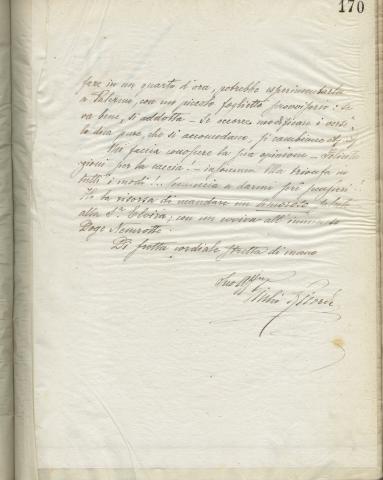 170
fare in un quarto d'ora, potrebbe esperimentarla
a Palermo, con un piccolo foglietto provvisorio: se
va bene, si addotta - Se occorre modificare i versi
lo dica pure, che si accomodano, si cambiano
Mi faccia conoscere la sua opinione -
giorni per la caccia! - insomma Ella trionfa in
tutti i modi... comincia a darmi
Ho la risorsa di mandare un saluto
alla Sra. Elvira; con un evviva all'
Doge Nemrotte.
Di fretta cordiale stretta di mano
Suo aff
Giulio Ricordi